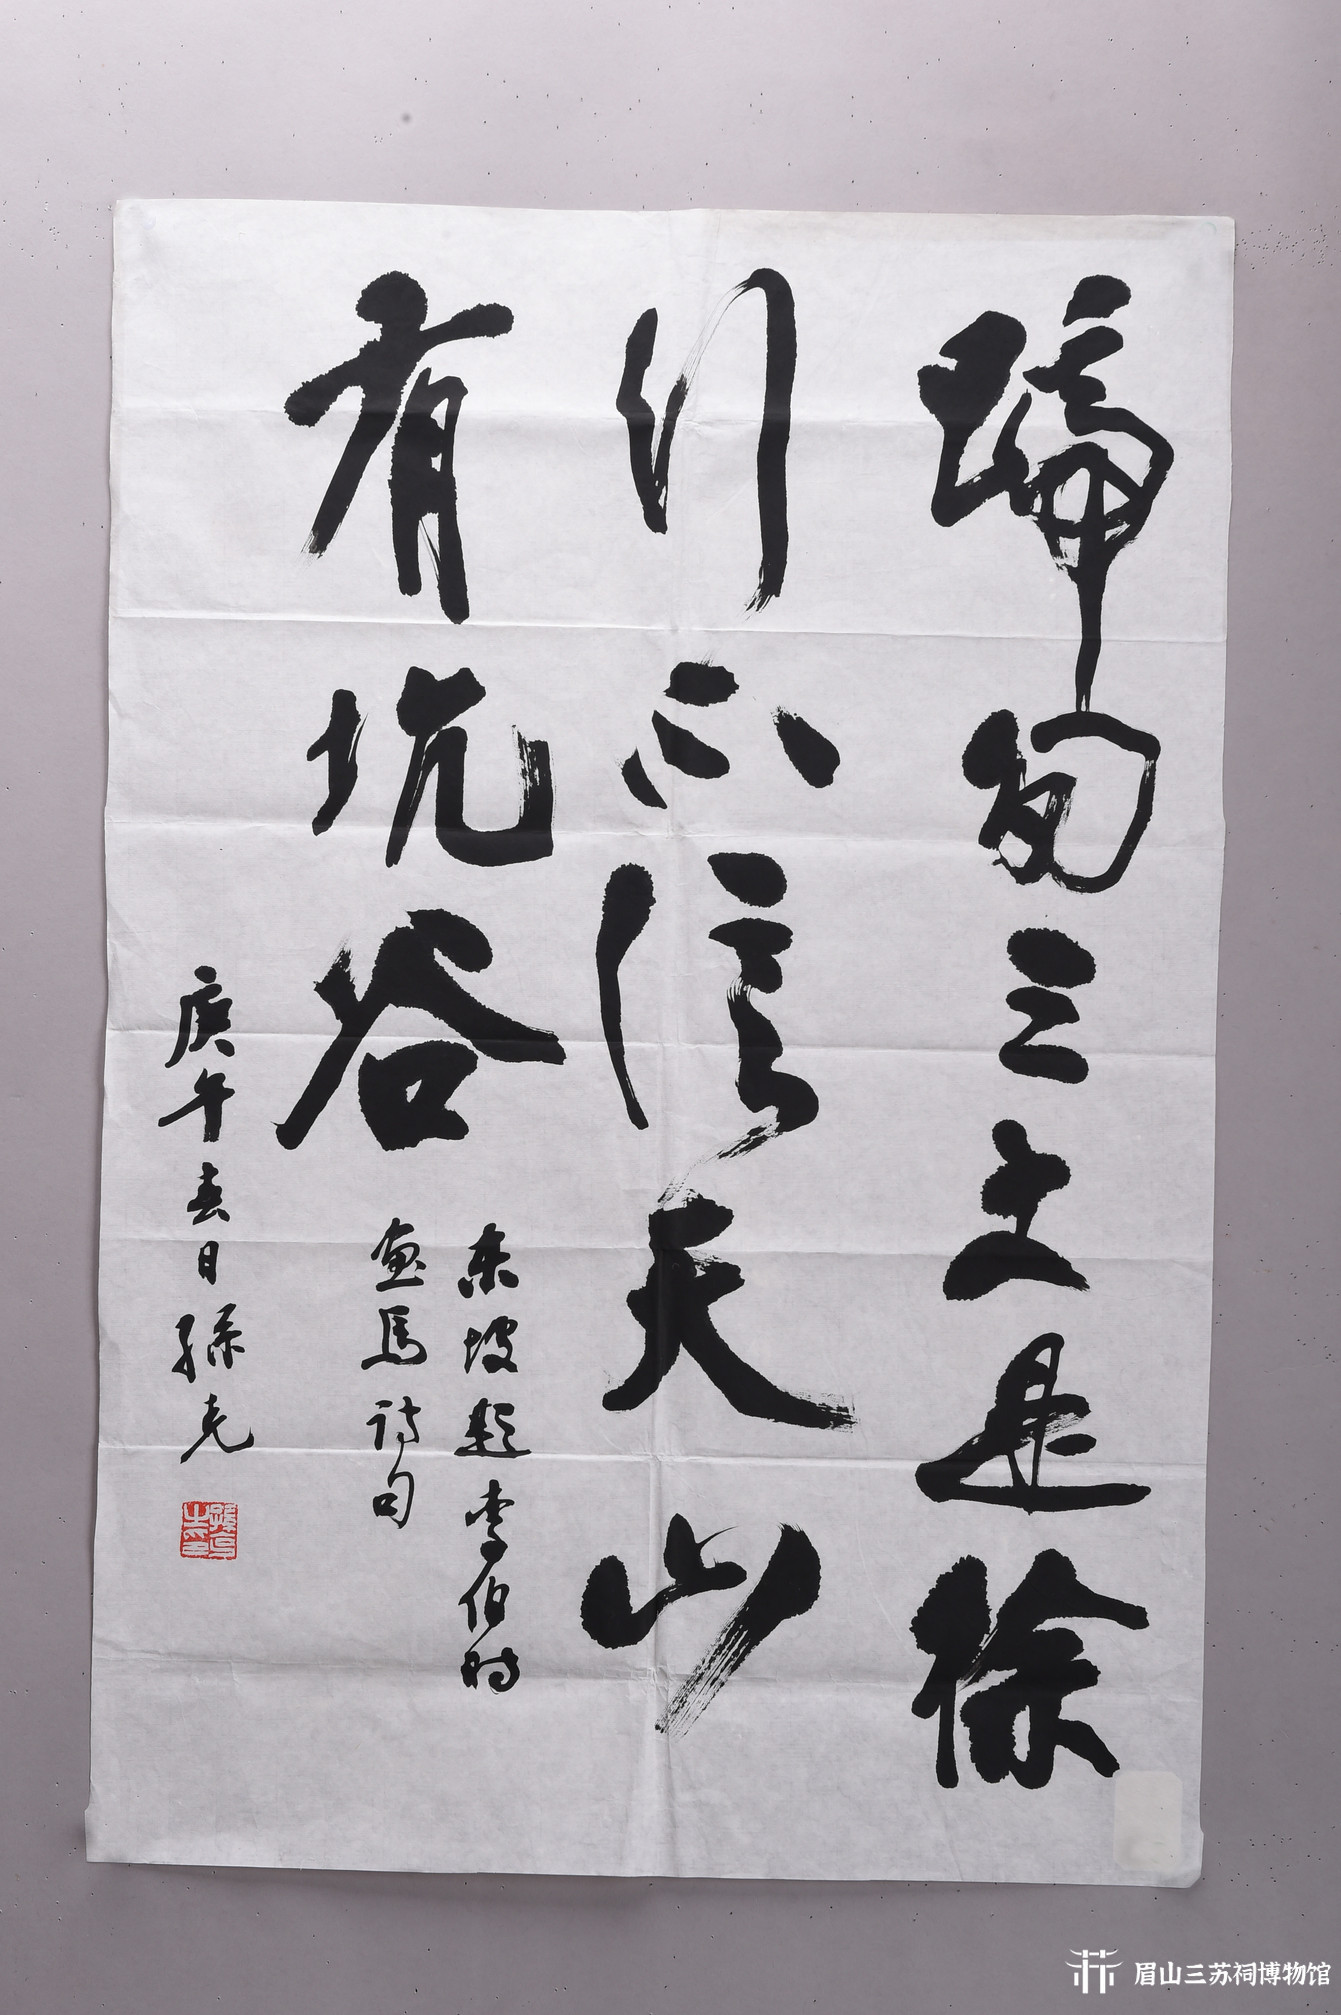 蹄間三丈是徐
行不信天山
有坑谷
東坡題李伯時
畫馬詩句
庚午春日孫克
眉山三苏祠博物馆